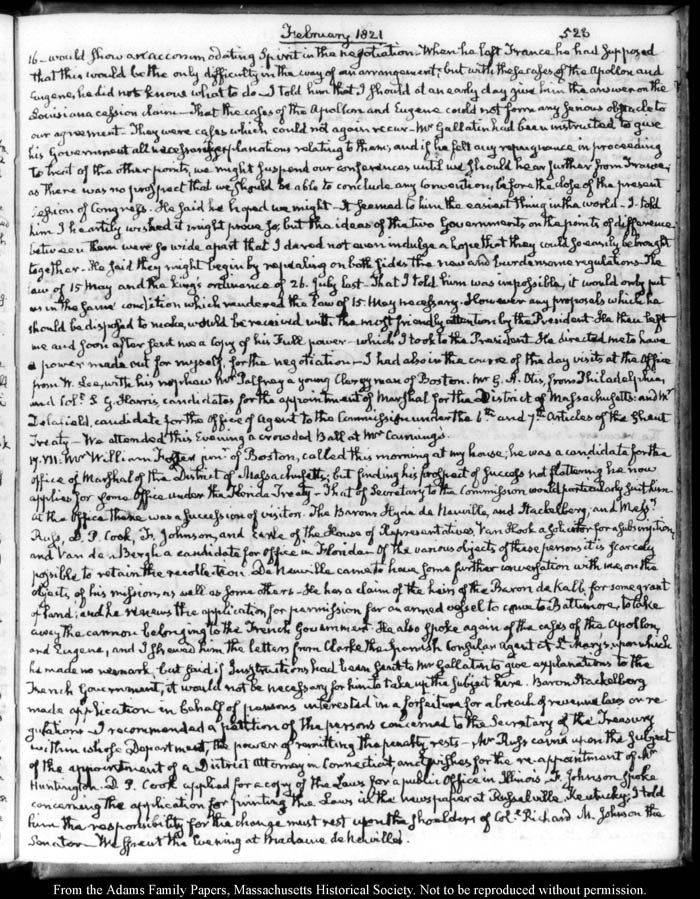 February 1821 528
16 - would show an accommodating Spirit in the negotiation. When he left France he had supposed
that this would be the only difficulty in the way of an arrangement; but with these cases of the Apollon and
Eugene, he did not know what to do - I told him that I should at an early day give him the answer on the
Louisiana cession claim - That the cases of the Apollon and Eugene could not form any serious obstacle to
our agreement. They were cases which could not again recur - Mr Gallatin had been instructed to give
his Government all necessary explanations relating to them; and if he felt any repugnance in proceeding
to treat of the other points, we might suspend our conferences until we should hear further from France;
as there was no prospect that we should be able to conclude any convention, before the close of the present
Session of Congress. He said he hoped we might - It seemed to him the easiest thing in the world - I told
him I heartily wished it might prove so, but the ideas of the two Governments on the points of difference
between them were so wide apart that I dared not even indulge a hope that they could so easily be brought
together - He said they might begin by repealing on both sides the new and burdensome regulations - The
law of 15 May and the king's ordinance of 26. July last. That I told him was impossible, it would only put
us in the same condition which rendered the law of 15. May necessary. However any proposals which he
should be disposed to make, would be received with the most friendly attention by the President. He then left
me and soon after sent me a copy of his Full power - which I took to the President. He directed me to have
a power made out for myself, for the negotiation - I had also in the course of the day visits at the Office
from W. Lee, with his nephew Mr Palfrey a young Clergyman of Boston. Mr G. A. Otis, from Philadelphia,
and Col. S G. Harris, candidates for the appointment of Marshal for the District of Massachusetts: and Mr
Delafield, candidate for the Office of Agent to the Commission under the 6th and 7th Articles of the Ghent
Treaty - We attended this Evening a crowded Ball at Mr Canning's.
17. VII: Mr William Foster junr of Boston, called this morning at my house; he was a candidate for the
office of Marshal of the District of Massachusetts; but finding his prospect of success not flattering he now
applies for some Office under the Florida Treaty - That of Secretary to the Commission would particularly suit him
at the Office there was a succession of visitors. The Barons Hyde de Neuville, and Stackelberg, and Messrs
Russ, D. P. Cook, F. Johnson, and of the House of Representatives, Van Hook a solicitor for a subscription,
and Van de Bergh a candidate for office in Florida - Of the various objects of these persons it is scarcely
possible to retain the recollection. De Neuville came to have some further conversation with me, on the
objects of his mission, as well as some others - He has a claim of the heirs of the Baron de Kalb, for some grant
of land; and he renews the application for permission for an armed vessel to come to Baltimore, to take
away the cannon belonging to the French Government. He also spoke again of the cases of the Apollon,
and Eugene, and I shewed him the letters from Clarke the Spanish Consular Agent at St Marys, upon which
he made no remark, but said if Instructions had been sent to Mr Gallatin to give explanations to the
French Government, it would not be necessary for him to take up the subject here. Baron Stackelberg
made application in behalf of persons interested in a forfeiture for a breach of revenue laws or re
gulations - I recommended a petition of the persons concerned to the Secretary of the Treasury
within whose Department, the power of remitting the penalty rests - Mr Russ came upon the subject
of the appointment of a District Attorney in Connecticut and wishes for the re-appointment of Mr
Huntington. D. P. Cook applied for a copy of the Laws for a public Office in Illinois. F. Johnson spoke
concerning the application for printing the Laws in the newspaper at Russelville, Kentucky; I told
him the responsibility for the change must rest upon the shoulders of Col. Richard M. Johnson the
Senator - We spent the Evening at Madame de Neuville's.
From the Adams Family Papers, Massachusetts Historical Society. Not to be reproduced without permission.